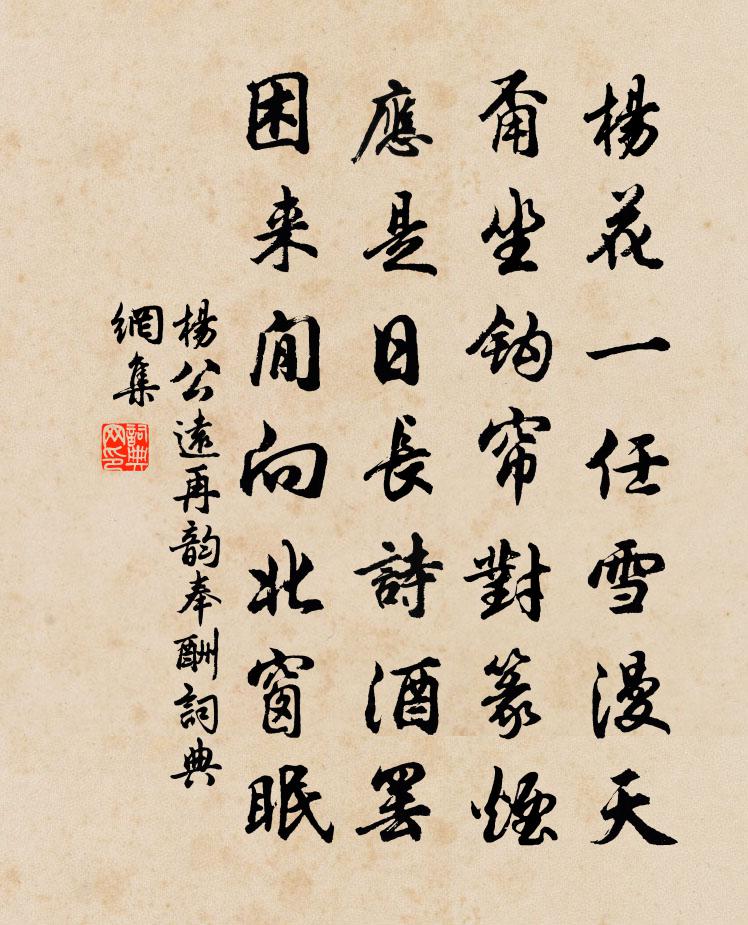 楊花一任雪漫天
甭坐鈎帘對篆煙
應是日長詩酒罢
困来閒向北窗眠
楊公遠再韵奉酬詞典
網集
詞典
网印